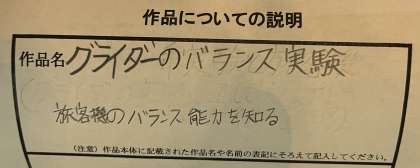 作品についての説明
作品名 グライダーのバランス実験
旅客機のバランス能力を知る
(注意)作品本体に記載された作品名や名前の表記にそろえて記入してください。